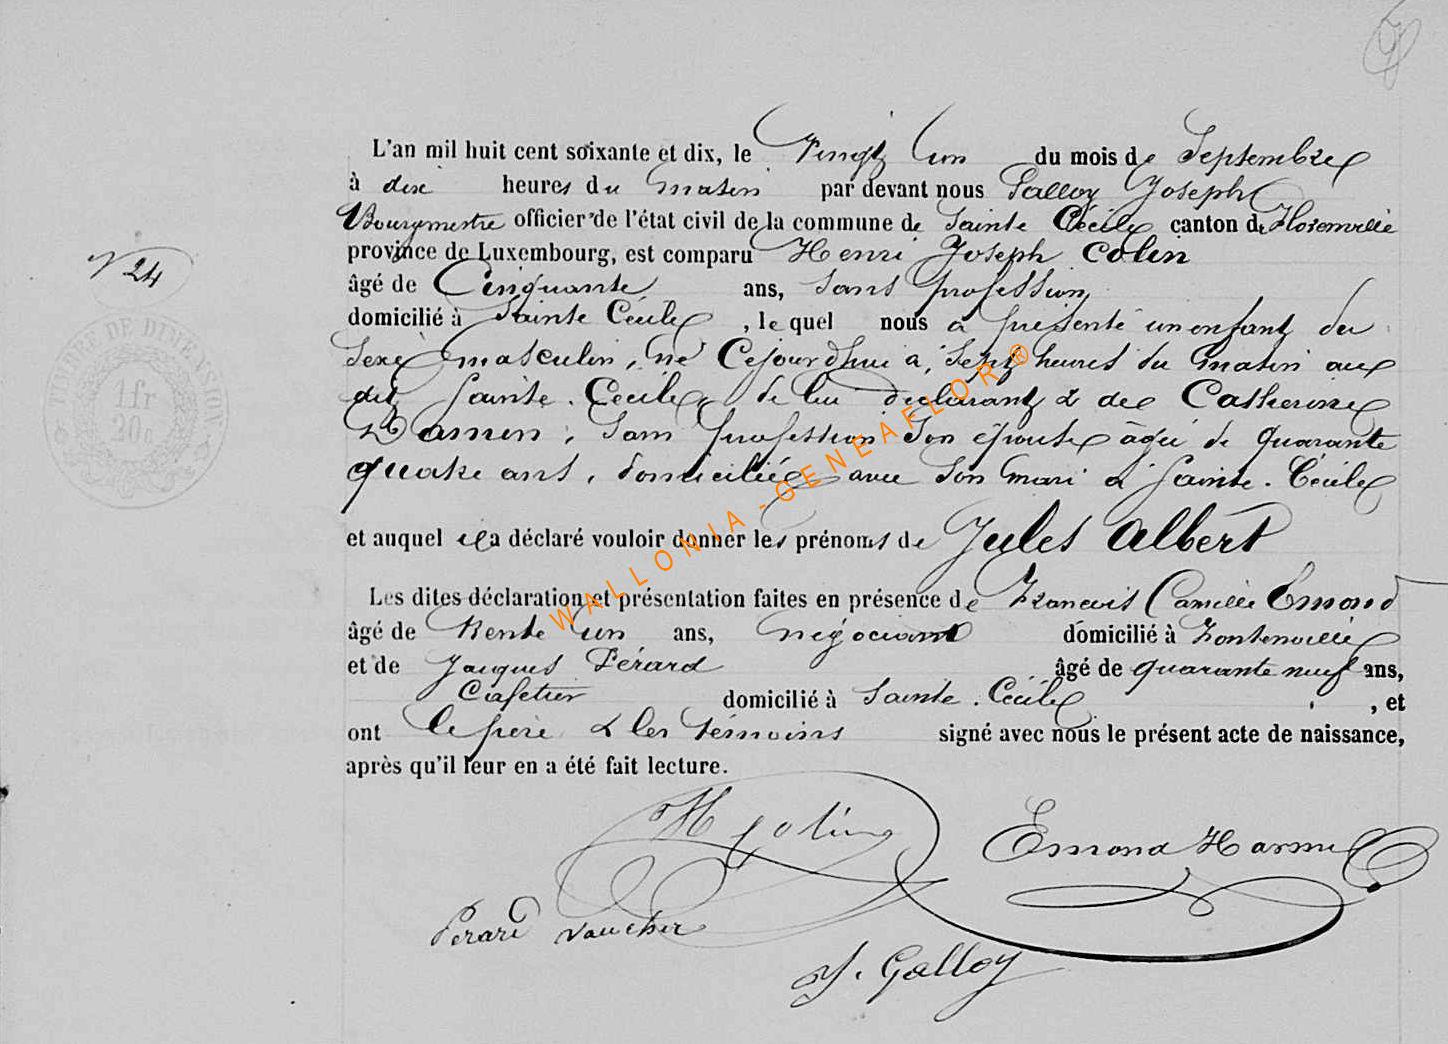 L'an mil huit cent soixante et dix, le Vingt un du mois de Septembre
à dix heures du matin par devant nous Galloy Joseph
Bourgmestre officier de l'état civil de la commune de Sainte Cécile canton de Florenville
N° 24
province de Luxembourg, est comparu Henri Joseph Colin
âgé de Cinquante ans, sans profession,
domicilié à Sainte Cécile, le quel nous a présenté un enfant du
TIMBRE DE DIMENSION
1 fr
20 c
sexe masculin, né Cejourd'hui à sept heures du matin au
dit Sainte-Cécile, de lui déclarant & de Catherine
sans profession son épouse âgée de quarante
quatre ans, domiciliée avec son mari à Sainte-Cécile
et auquel il a déclaré vouloir donner les prénoms de Jules Albert
Les dites déclaration et présentation faites en présence de François Camille Emond
âgé de trente un ans, négociant domicilié à Fontenoille
et de Jacques Pérard âgé de quarante neuf ans,
Cafetier domicilié à Sainte-Cécile, et
ont le père & les témoins signé avec nous le présent acte de naissance,
après qu'il leur en a été fait lecture.
H J Colin
Emond Harmel
Pérard Vaucher
J. Galloy
WALLONIA-GENEAFLOR®